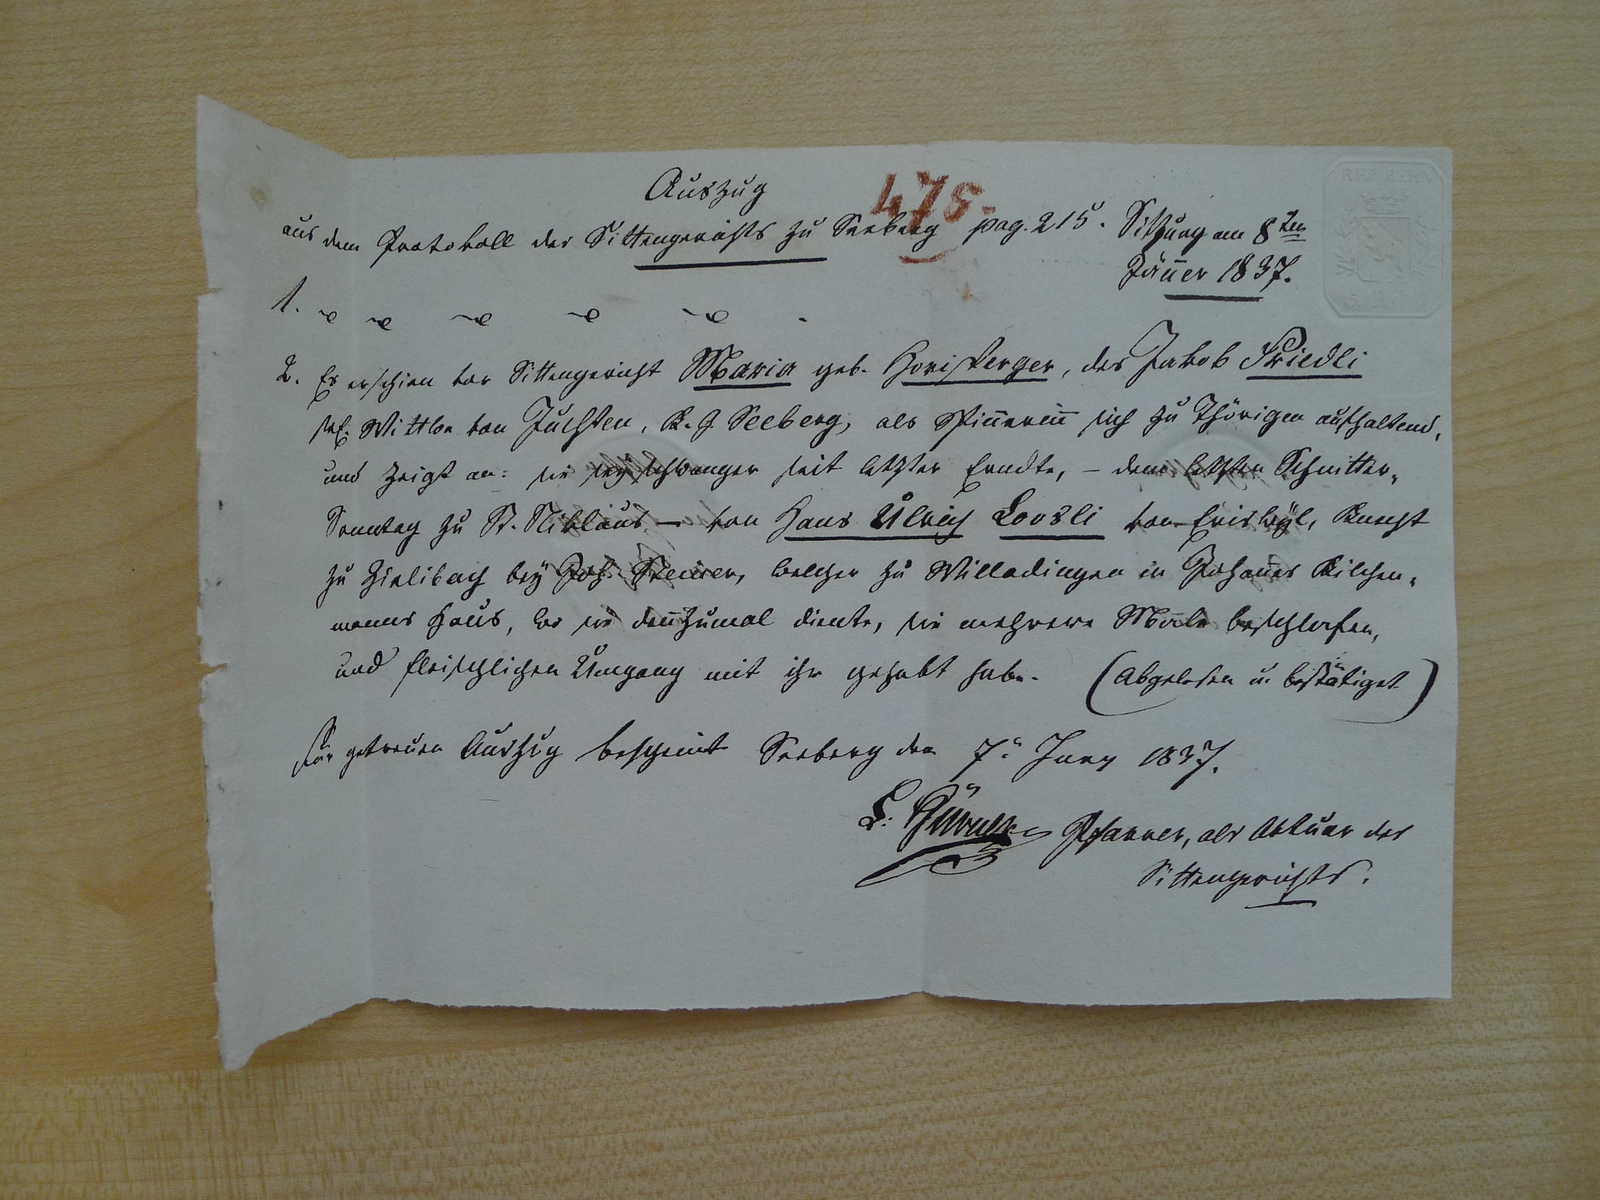 Auszug
475.
aus dem Protokoll des Sittengerichts zu Seeberg pag. 215. Sitzung am 8ten
Jänner 1837.
1.
2. Es erschien vor Sittengericht Maria geb. Horisperger, des Jakob Friedli
sel. Wittwe von Juchten, K. G. Seeberg, als Spinnerin sich zu Thörigen aufhaltend,
und zeigt an: sie sey schwanger seit letzter Erndte, – dem letzten Schnitter-
Sonntag zu St. Niklaus – von Hans Ulrich Loosli von Eriswÿl, Knecht
zu Zielibach beÿ Joh. Steiner, welcher zu Willadingen in Johannes Kilchen-
manns Haus, wo sie dannzumal diente, sie mehrere Male beschlafen,
und fleischlichen Umgang mit ihr gehabt habe. (Abgelesen u. bestätiget)
Für getreuen Auszug bescheint Seeberg den 7. Juny 1837.
L. Pfarrer, als Aktuar des
Sittengerichts.